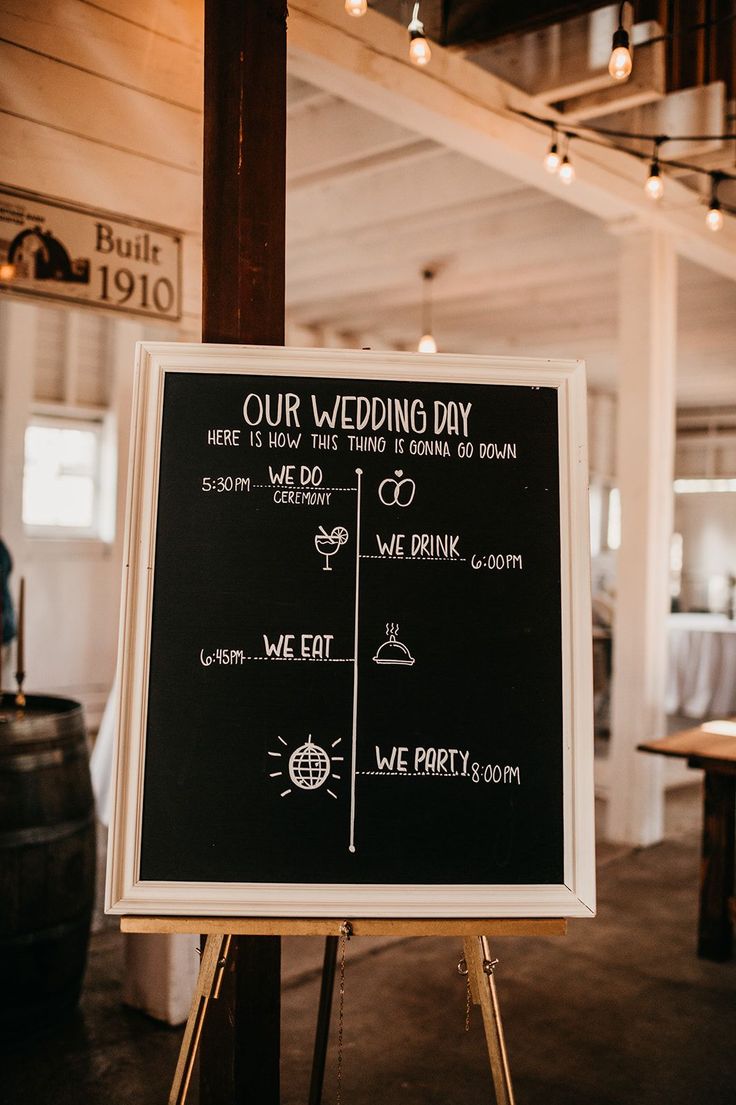 Built
1910
OUR WEDDING DAY
HERE IS HOW THIS THING IS GONNA GO DOWN
5:30PM WE DO
CEREMONY
WE DRINK 6:00PM
6:45PM WE EAT
WE PARTY 8:00PM